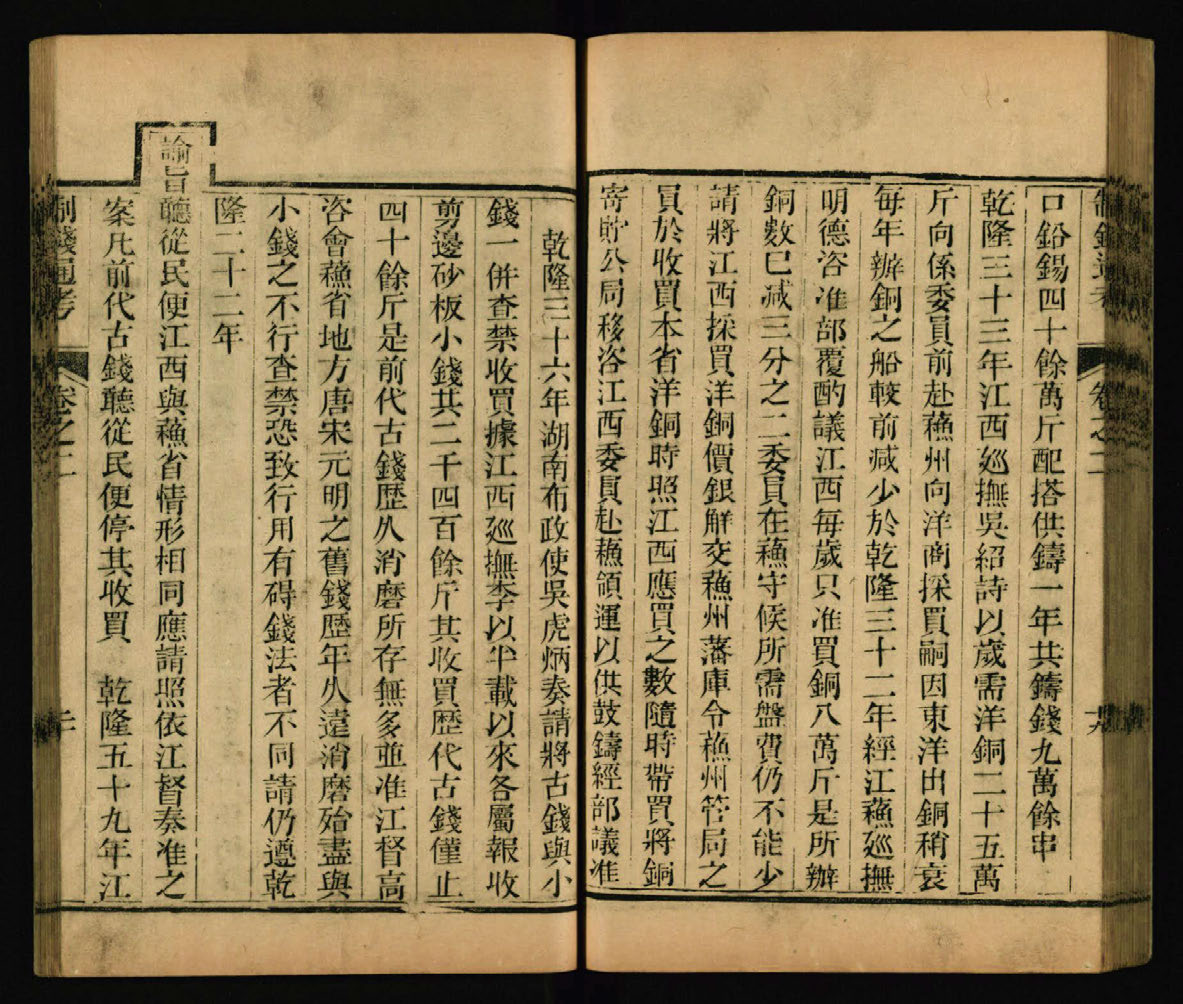 制錢通考
卷之二
十九
口鉛錫四十餘萬斤配搭供鑄一年共鑄錢九萬餘串
乾隆三十三年江西廵撫吳紹詩以歲需洋銅二十五萬
斤向係委員前赴蘓州向洋商採買嗣因東洋出銅稍衰
每年辦銅之船較前减少於乾隆三十二年經江蘓廵撫
明德咨准部覆酌議江西每歲只准買銅八萬斤是所辦
銅數已减三分之二委員在蘓守候所需盤費仍不能少
請將江西採買洋銅價銀解交蘓州藩庫令蘓州管局之
員於收買本省洋銅時照江西應買之數隨時帶買將銅
寄貯公局移咨江西委員赴蘓領運以供鼓鑄經部議准
乾隆三十六年湖南布政使吳虎炳奏請將古錢與小
錢一併查禁收買據江西廵撫李以半載以來各屬報收
剪邊砂板小錢共二千四百餘斤其收買歷代古錢僅止
四十餘斤是前代古錢歷久消磨所存無多並准江督高
咨會蘓省地方唐宋元明之舊錢歷年久遠消磨殆盡與
小錢之不行查禁恐致行用有碍錢法者不同請仍遵乾
隆二十二年
諭旨聽從民便江西與蘓省情形相同應請照依江督奏准之
案凡前代古錢聽從民便停其收買　乾隆五十九年江
制錢通考
卷之二
二十